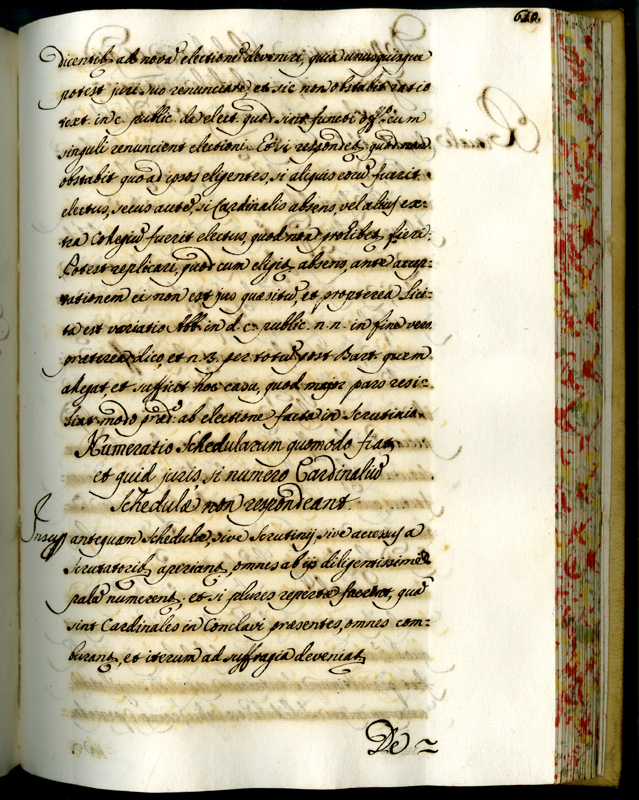 610.
Dicentib. ad nova electione deveniri, quia unusquisque
potest juri suo renunciare, et sic non obstabit ratio
text. in c. public. de elect. quod sint functi off.º cum
singuli renuncient electioni. Et vi respondet, quod non
obstabit quo ad ipsos eligentes, si aliquis eorũ fuerit
electus, secus autẽ, si Cardinalis absens, vel alius ex=
tra Collegiũ fuerit electus, quod non prohibet fieri.
Potest replicari, quod cum eligit absens, ante accep=
tationem ei non est jus quæsitũ, et propterea lici=
ta est variatio Abb. in d. c. public. n. n. in fine vers.
præterea dico, et n. 3. per totũ post Bart. quem
allegat, et sufficit hoc casu, quod major pars resi=
liat modo præd. ab electione facta in Scrutinio.
Numeratio Schedularum quomodo fiat,
et quid juris, si numero Cardinaliũ
Schedulæ non respondeant.
antequam Schedulæ, sive Scrutinij sive accessus a
Scrutatorib. aperiant, omnes ab ijs diligentissimè
palã numerent, et si plures repertæ fuerint, quã
sint Cardinales in Conclavi præsentes, omnes com=
burant, et iterum ad suffragia deveniat,
De ~